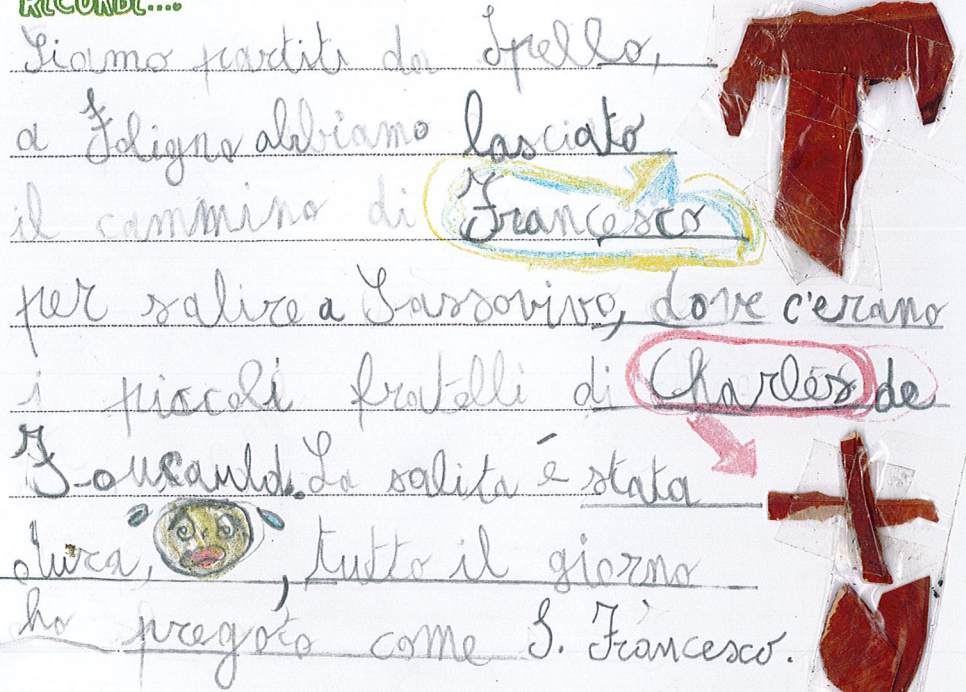 RICORDI....
Siamo partiti da Spello,
a Foligno abbiamo lasciato
il cammino di Francesco
per salire a Sassovivo, dove c'erano
i piccoli fratelli di Charles de
Foucauld. La salita é stata
dura, , tutto il giorno
ho pregato come S. Francesco.